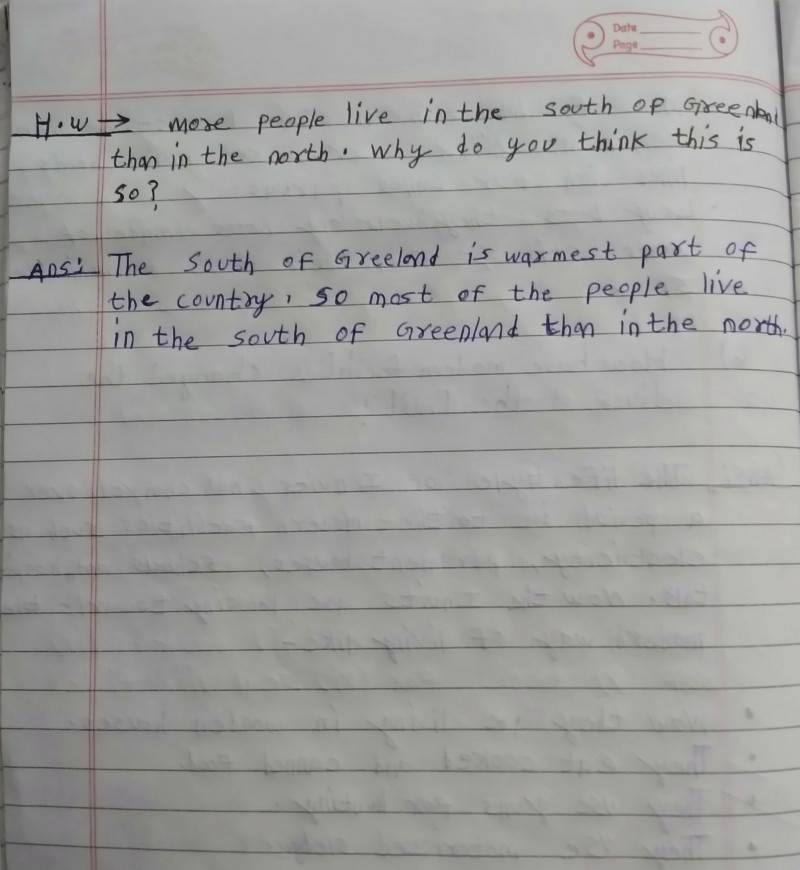 Date
Page
H.W → More people live in the south of Greenland
than in the north. Why do you think this is
so?
Ans: The South of Greelond is warmest part of
the country, so most of the people live
in the south of Greenland than in the north.